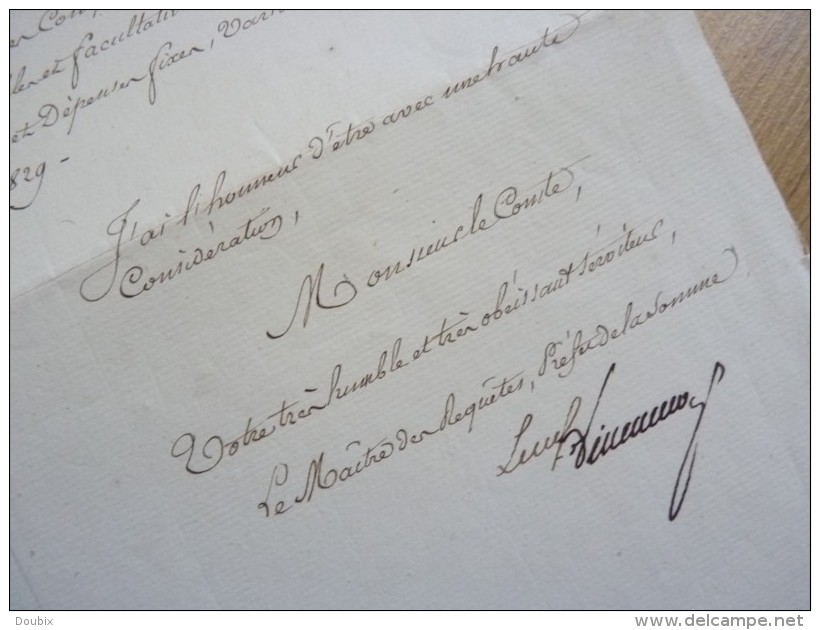 et facultati
et Dépenses fixes, Vari
829 -
J'ai l'honneur d'être avec une haute
Considération,
Monsieur le Comte,
Votre très humble et très obéissant serviteur,
Le Maître des Requêtes, Préfet de la Somme
Doubix
delcampe.net